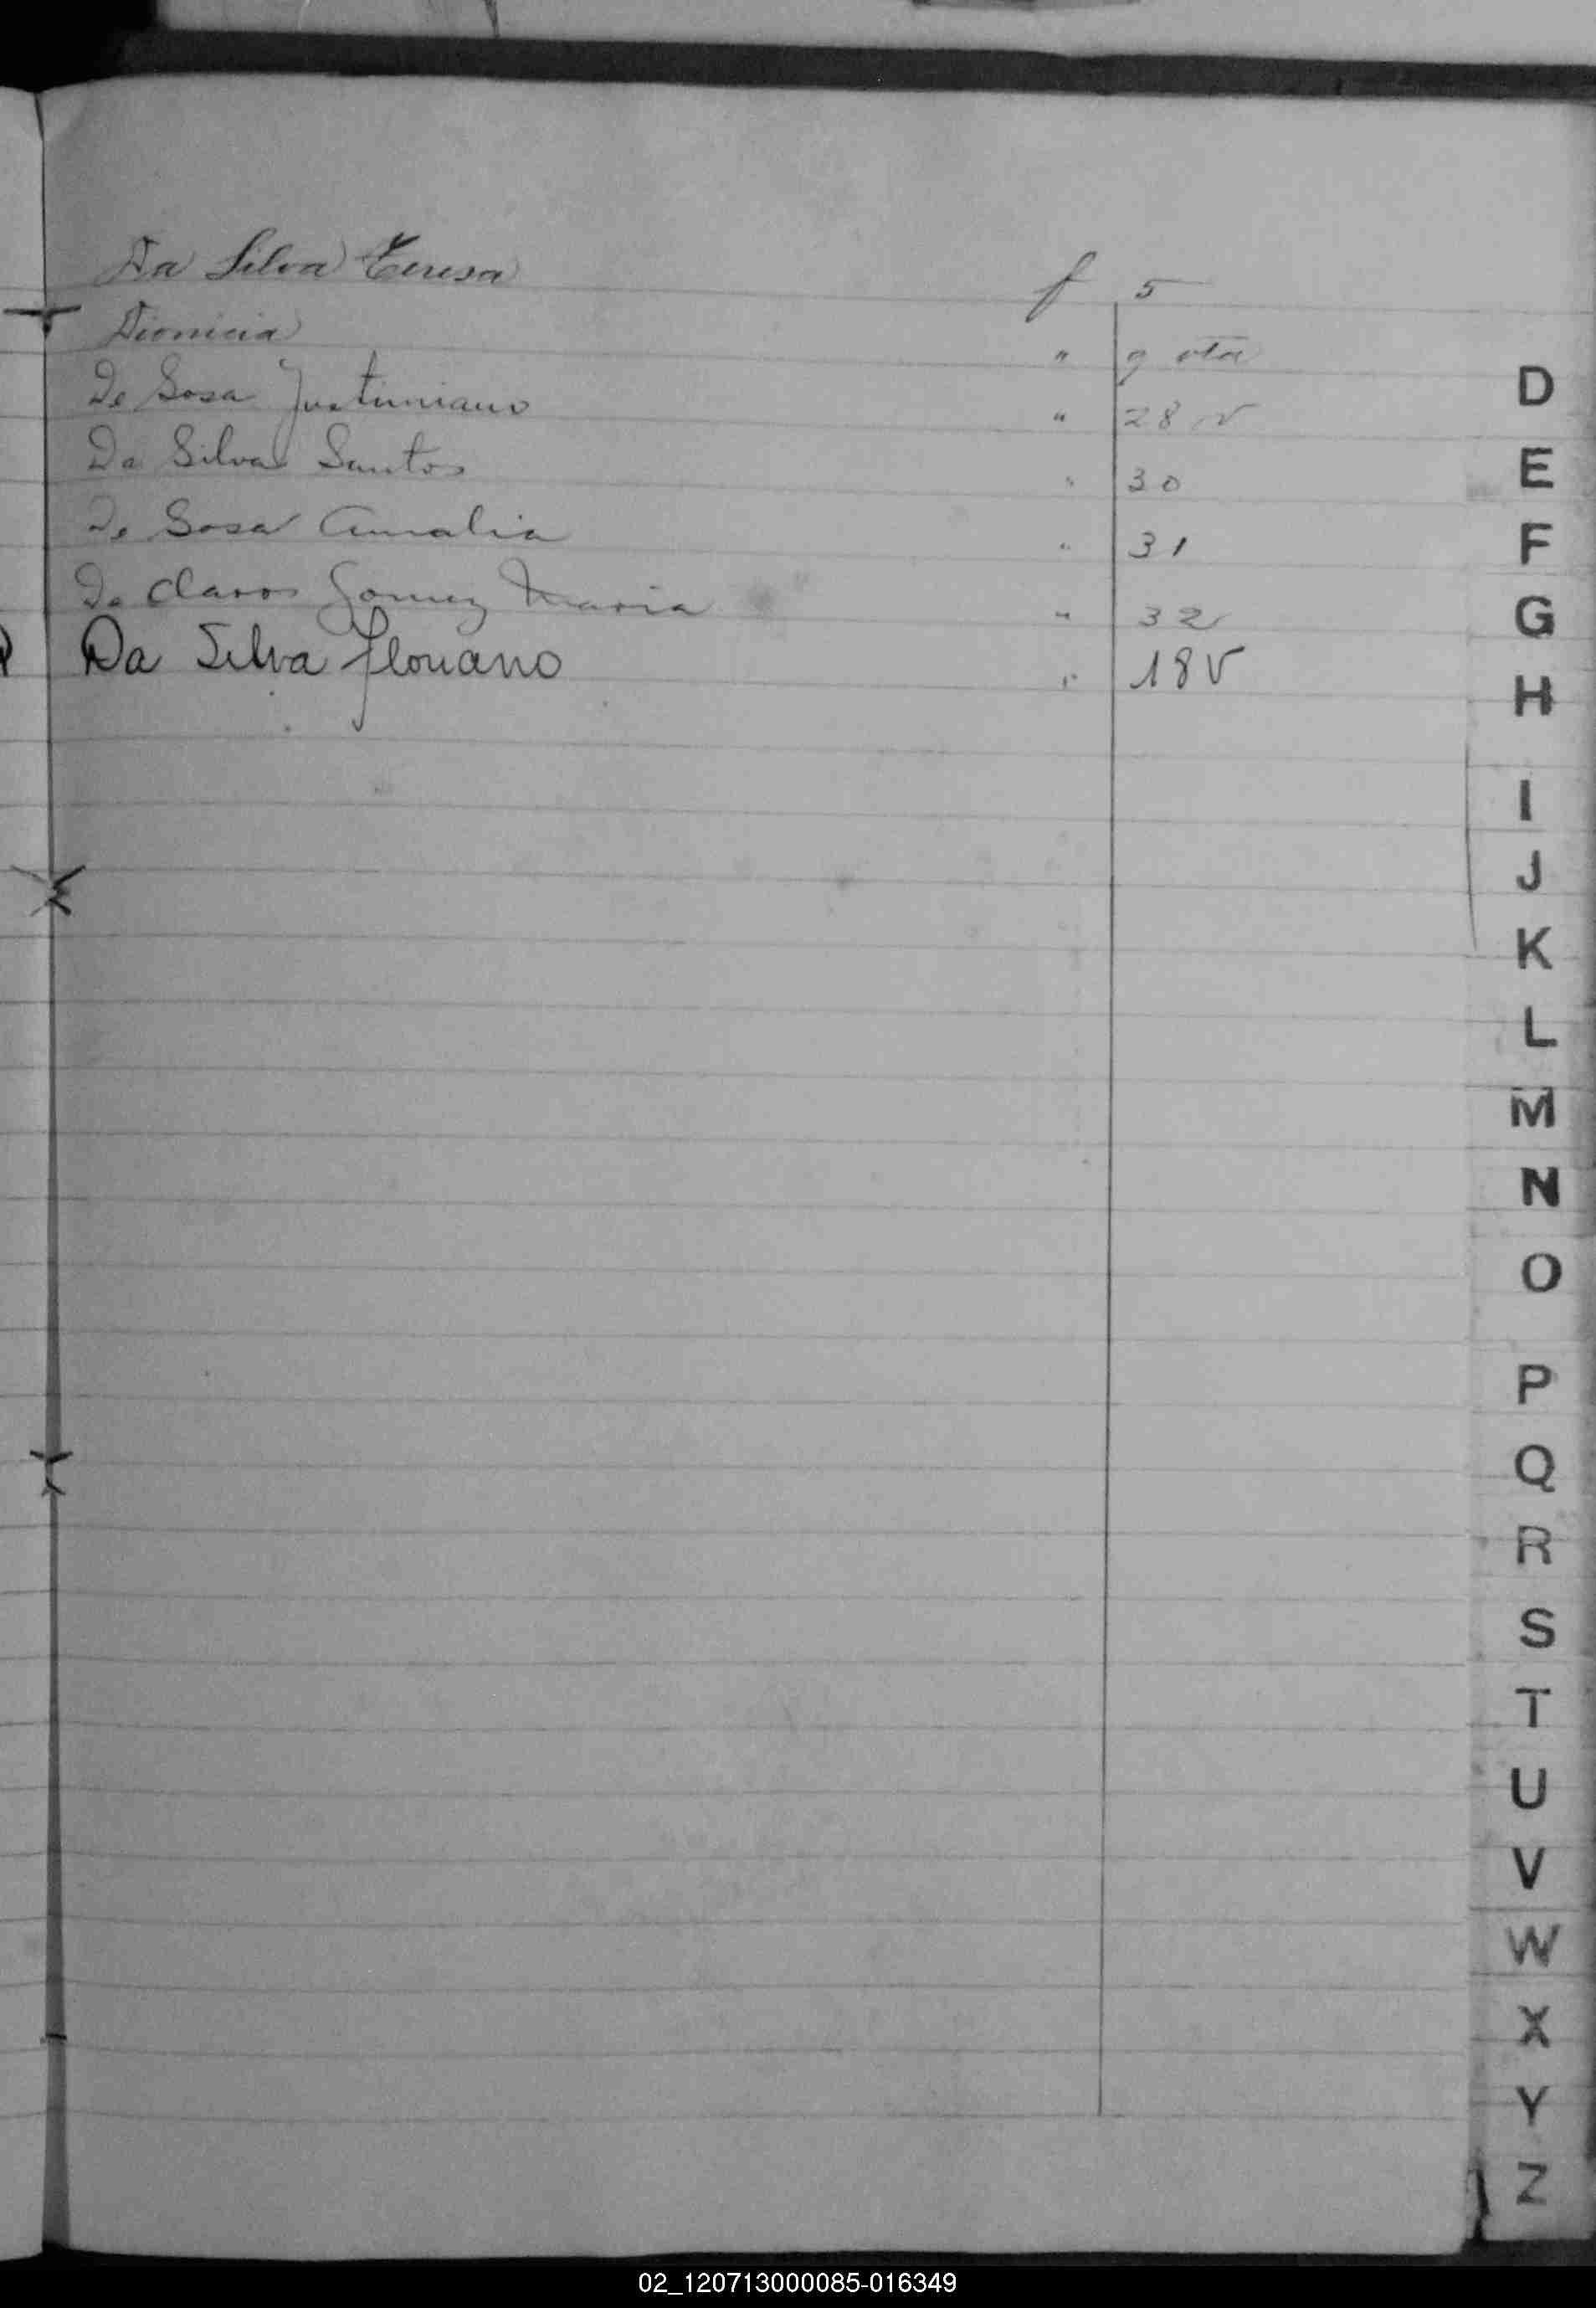 Da Silva Teresa f 5
Dionicia " 9 vta
De Sosa Justiniano " 28 v
Da Silva Santos " 30
De Sosa Amalia " 31
De Claros Gomez Maria " 32
Da Silva Floriano " 18 V
D
E
F
G
H
I
J
K
L
M
N
O
P
Q
R
S
T
U
V
W
X
Y
Z
02_120713000085-016349